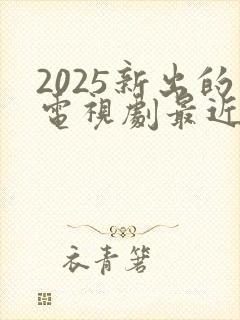 2025新出的
電視劇最近
衣青箬